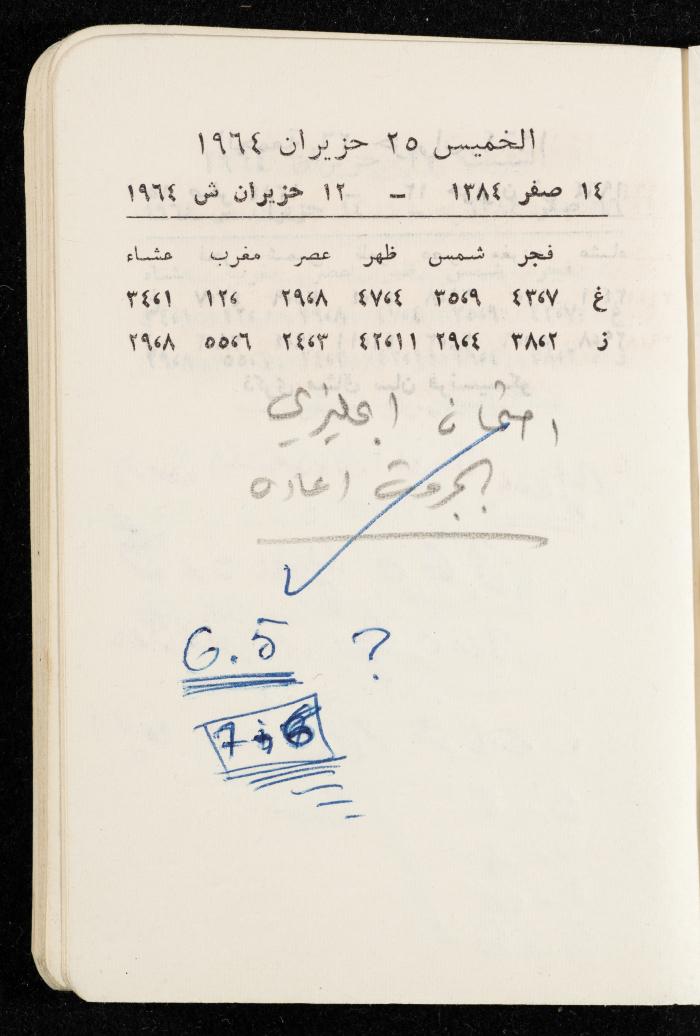 الخميس ٢٥ حزيران ١٩٦٤
١٤ صفر ١٣٨٤ – ١٢ حزيران ش ١٩٦٤
فجر شمس ظهر عصر مغرب عشاء
غ ٤٣،٧ ٣٥،٩ ٤٧،٤ ٢٩،٨ ١٢، ٣٤،١
ز ٣٨،٢ ٢٩،٤ ٤٢،١١ ٢٤،٣ ٥٥،٦ ٢٩،٨
امتحان انجليزي
بجروت اعاده
6.5 ?